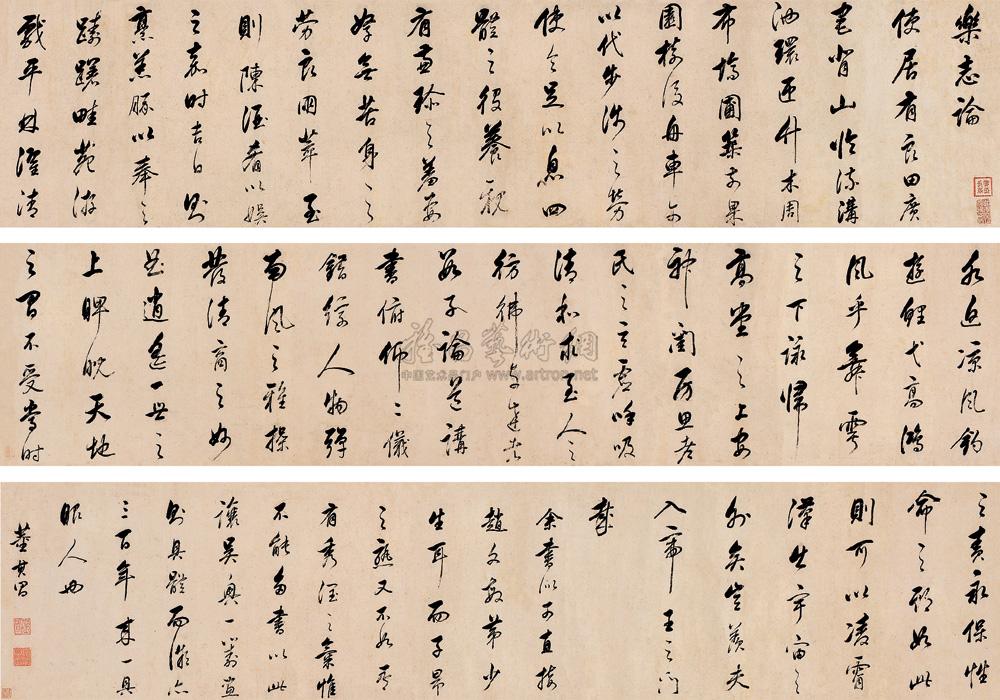 樂志論
使居有良田廣
宅背山臨流溝
池環匝竹木周
布場圃築前果
園樹後舟車足
以代步涉之勞
使令足以息四
體之役養親
有兼珍之膳妻
孥無苦身之
勞良朋萃至
則陳酒肴以娛
之嘉時吉日則
烹羔豚以奉之
躊躇畦苑游
戲平林濯清
水追涼風釣
遊鯉弋高鴻
風乎舞雩
之下詠歸
高堂之上安
神閨房思老
氏之玄虛呼吸
清和求至人之
彷彿與達者
數子論道講
書俯仰二儀
錯綜人物彈
南風之雅操
發清商之妙
曲逍遙一世之
上睥睨天地
之間不受當時
之責永保性
命之期如此
則可以凌霄
漢出宇宙之
外矣豈羨夫
入帝王之門
哉
余書似可直接
趙文敏第少
生耳而子昂
之熟又不如吾
有秀潤之氣惟
不能多書以此
讓吳興一籌畫
則具體而微亦
三百年來一具
眼人也
董其昌
雅昌藝術網
中国艺术品门户 www.artron.net